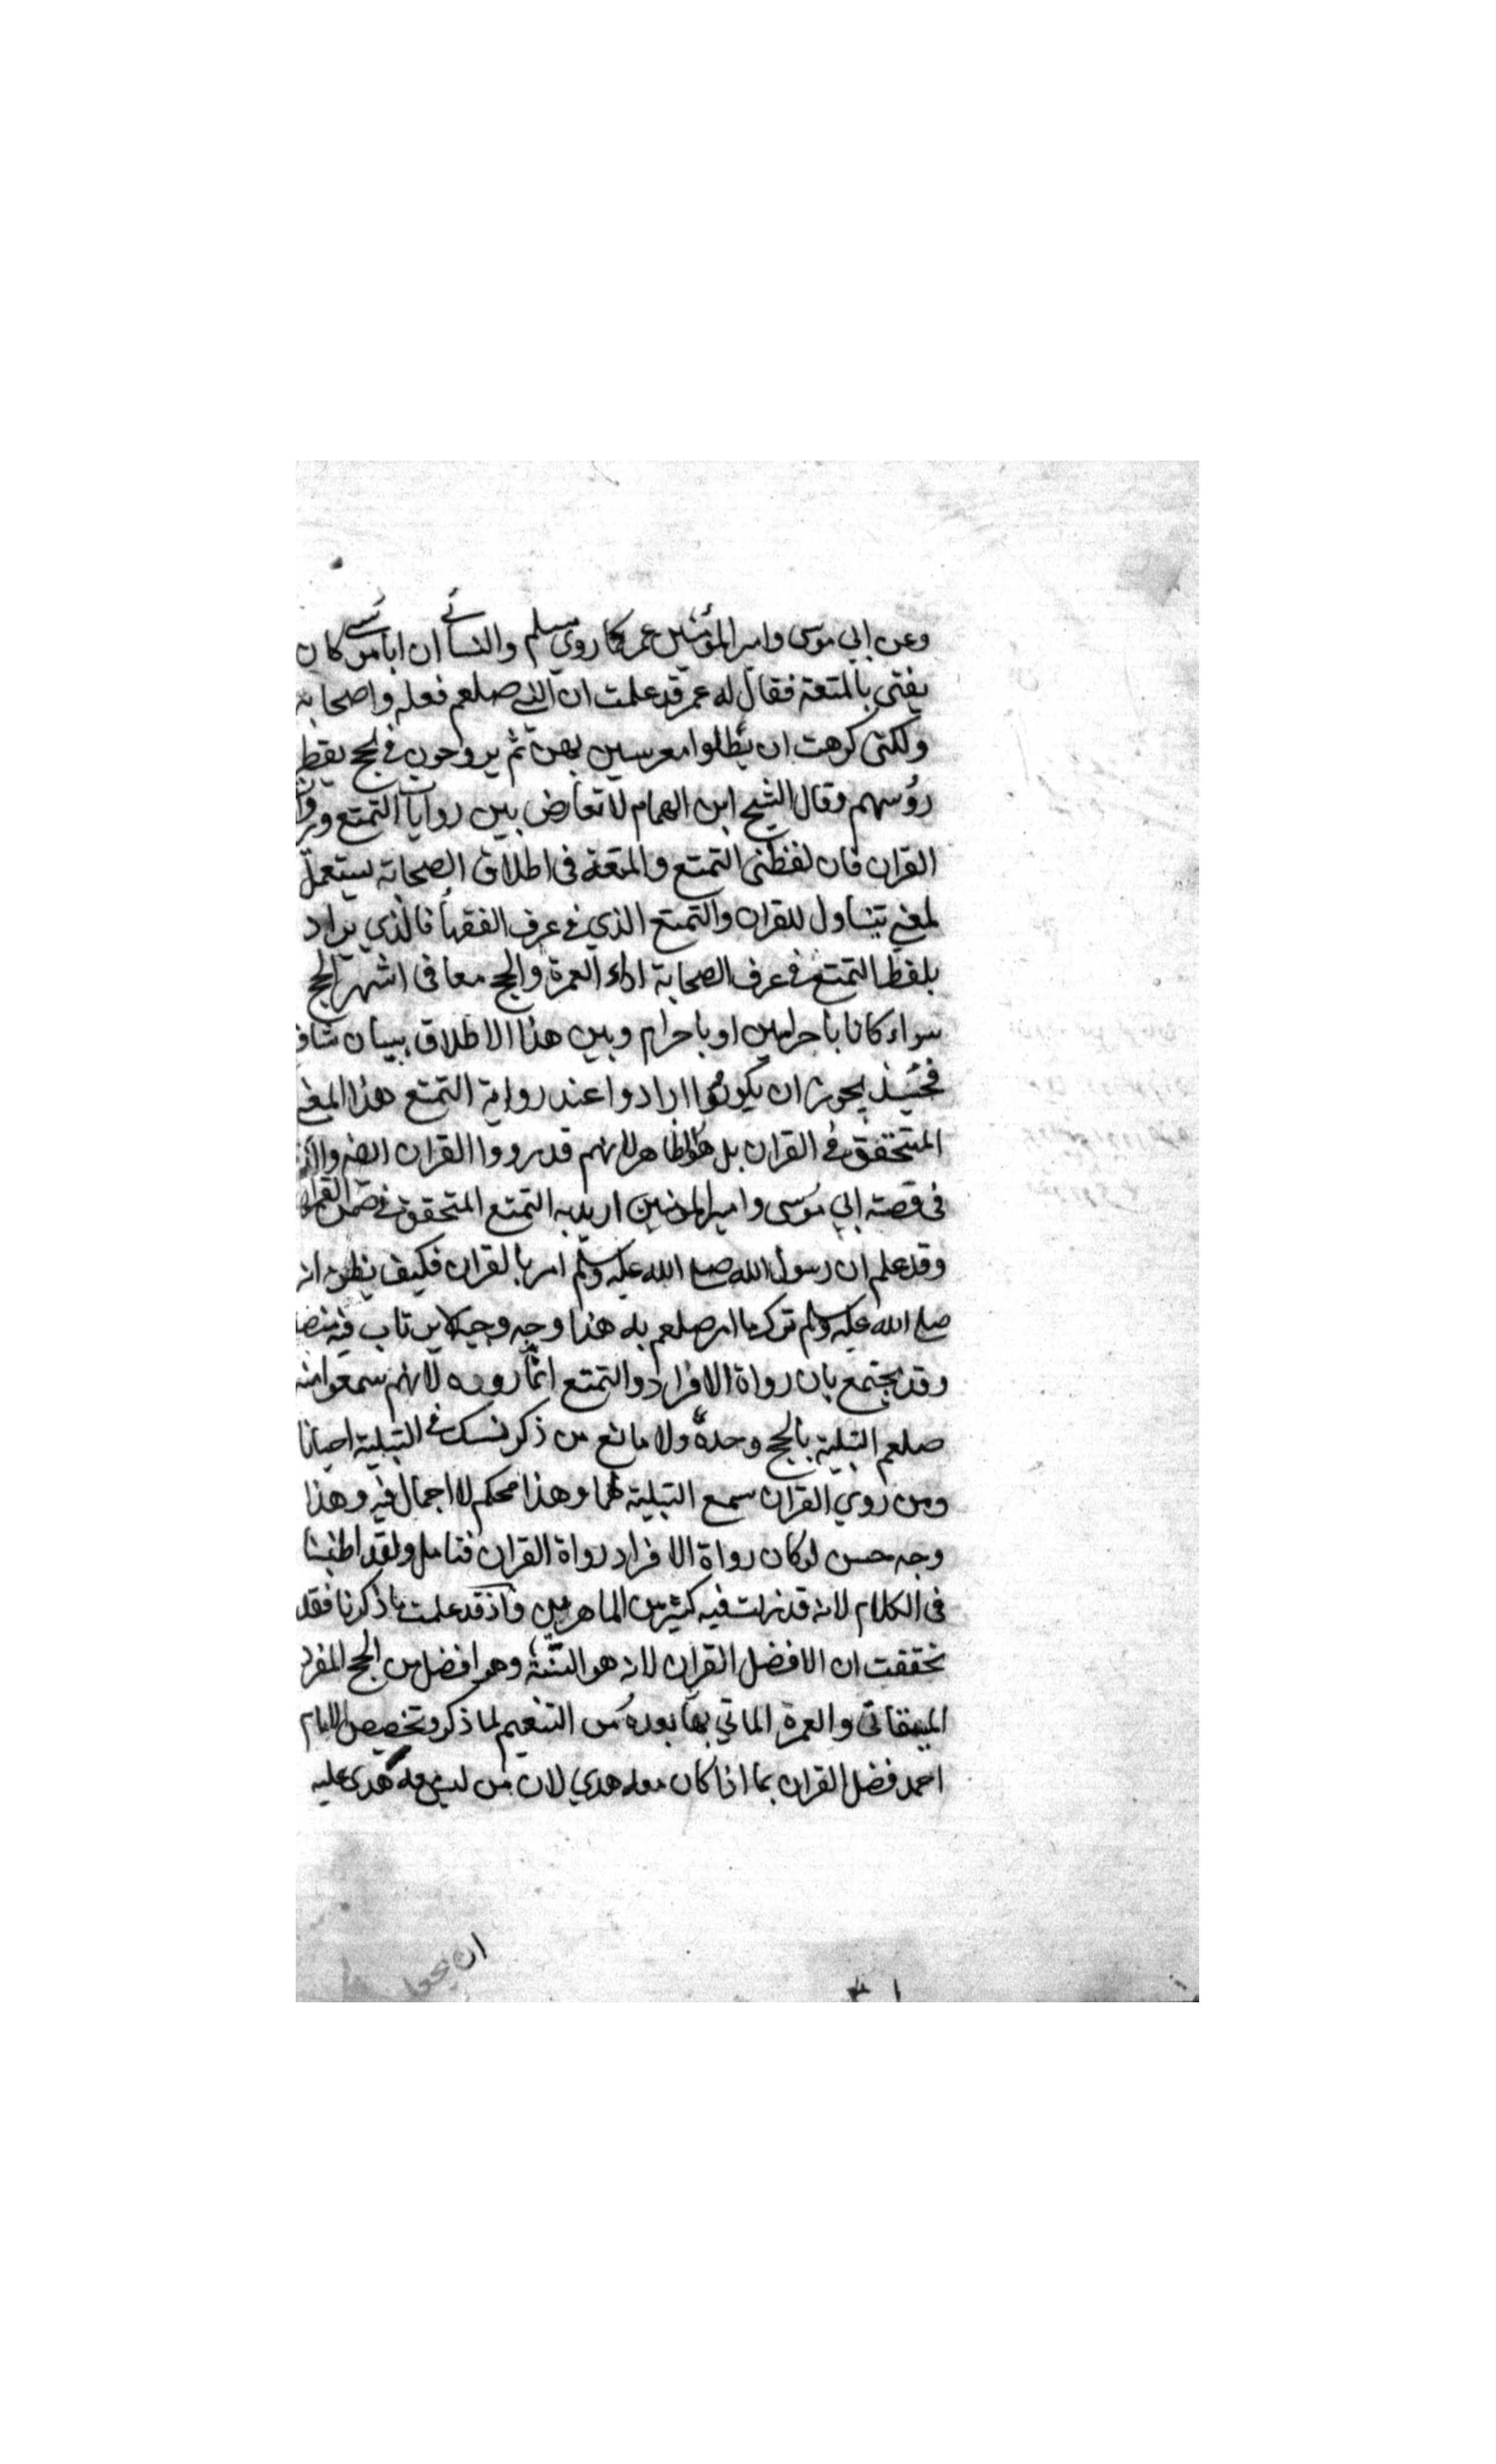 وعن ابي موسى وامير المؤمنين عمر كما روي مسلم والنسائي ان ابا موسى كان
يفتي بالمتعة فقال له عمر قد علمت ان النبي صلعم فعله واصحابه
ولكني كرهت ان يظلوا معرسين بهن ثم يروحون في الحج يقطر
رؤسهم وقال الشيخ ابن الهمام لا تعارض بين روايات التمتع و
القران فان لفظي التمتع والمتعة في اطلاق الصحابة يستعمل
لمعنى يتناول للقران والتمتع الذي في عرف الفقهاء فالذي يراد
بلفظ التمتع في عرف الصحابة اداء العمرة والحج معا في اشهر الحج
سواء كانا باحرامين او باحرام وبين هذا الاطلاق ببيان شاف
فحينئذ يجوز ان يكونوا ارادوا عند رواية التمتع هذا المعنى
المتحقق في القران بل هو الظاهر لانهم قد رووا القران ايضا
في قصة ابي موسى وامير المؤمنين اريد به التمتع المتحقق في ضمن القران
وقد علم ان رسول الله صلى الله عليه وسلم امر بالقران فكيف يظن انه
صلى الله عليه وسلم ترك ما امر صلعم به هذا وجه وجيه لا يرتاب فيه
وقد يجتمع بان رواة الافراد والتمتع انما رووه لانهم سمعوا منه
صلعم التلبية بالحج وحده ولا مانع من ذكر نسك في التلبية احيانا
ومن روي القران سمع التلبية لهما وهذا محكم لا اجمال فيه وهذا
وجه حسن لو كان رواة الافراد رواة القران فتامل ولقد اطنبنا
في الكلام لانه قد زلت فيه كثير من الماهرين واذ قد علمت ما ذكرنا فقد
تحققت ان الافضل القران لانه هو السنة وهو افضل من الحج المفرد
الميقاتي والعمرة الماتي بها بعده من التنعيم لما ذكر وتخصيص الامام
احمد فضل القران بما اذا كان معه هدي لان من ليس معه هدى عليه
ان